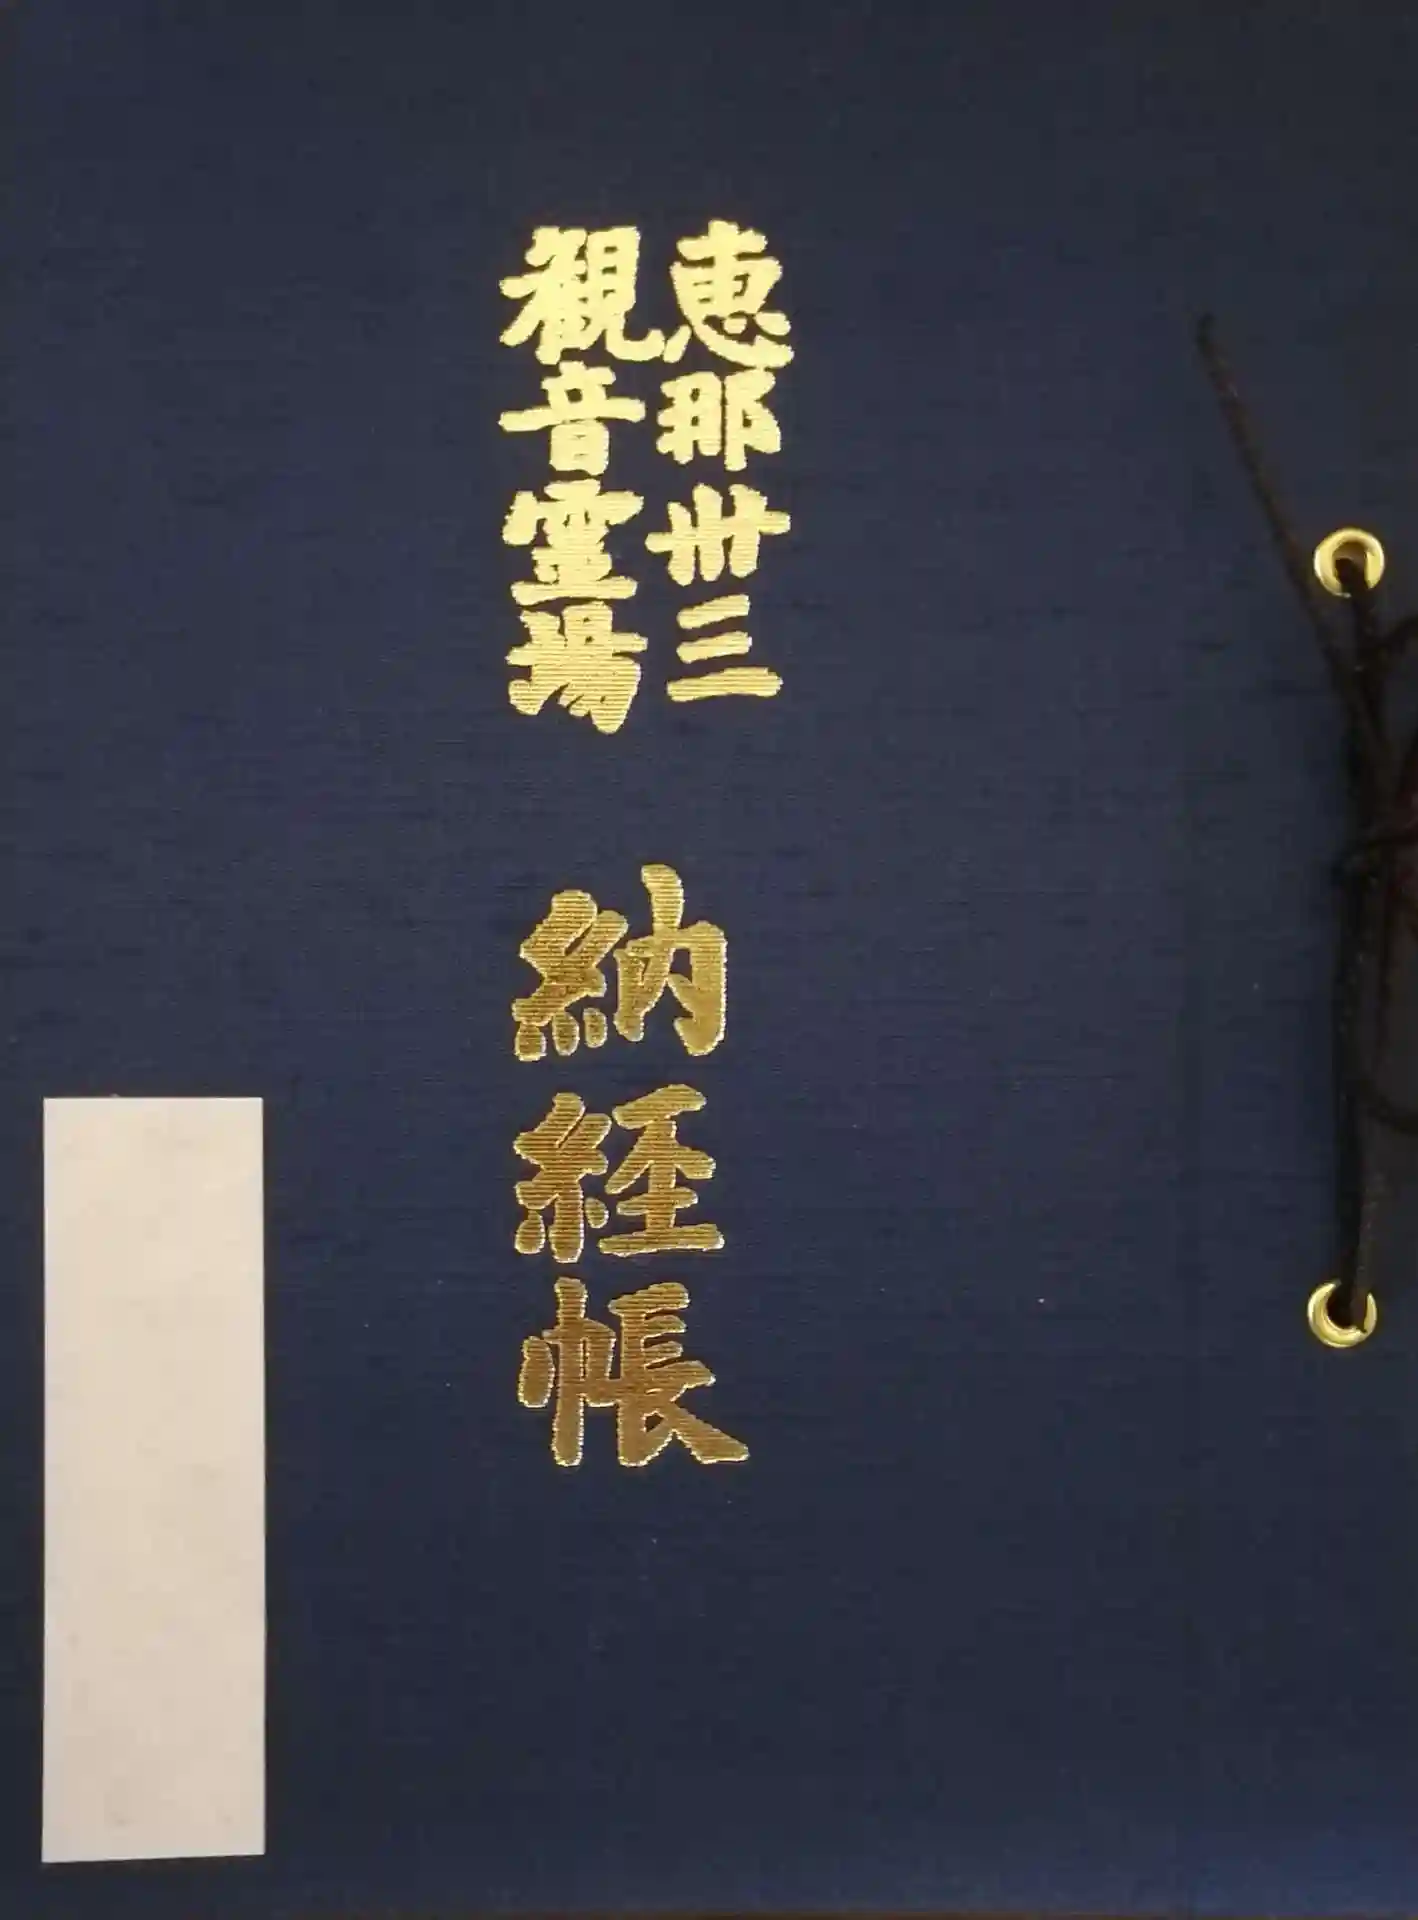 恵那卅三
観音霊場
納経帳